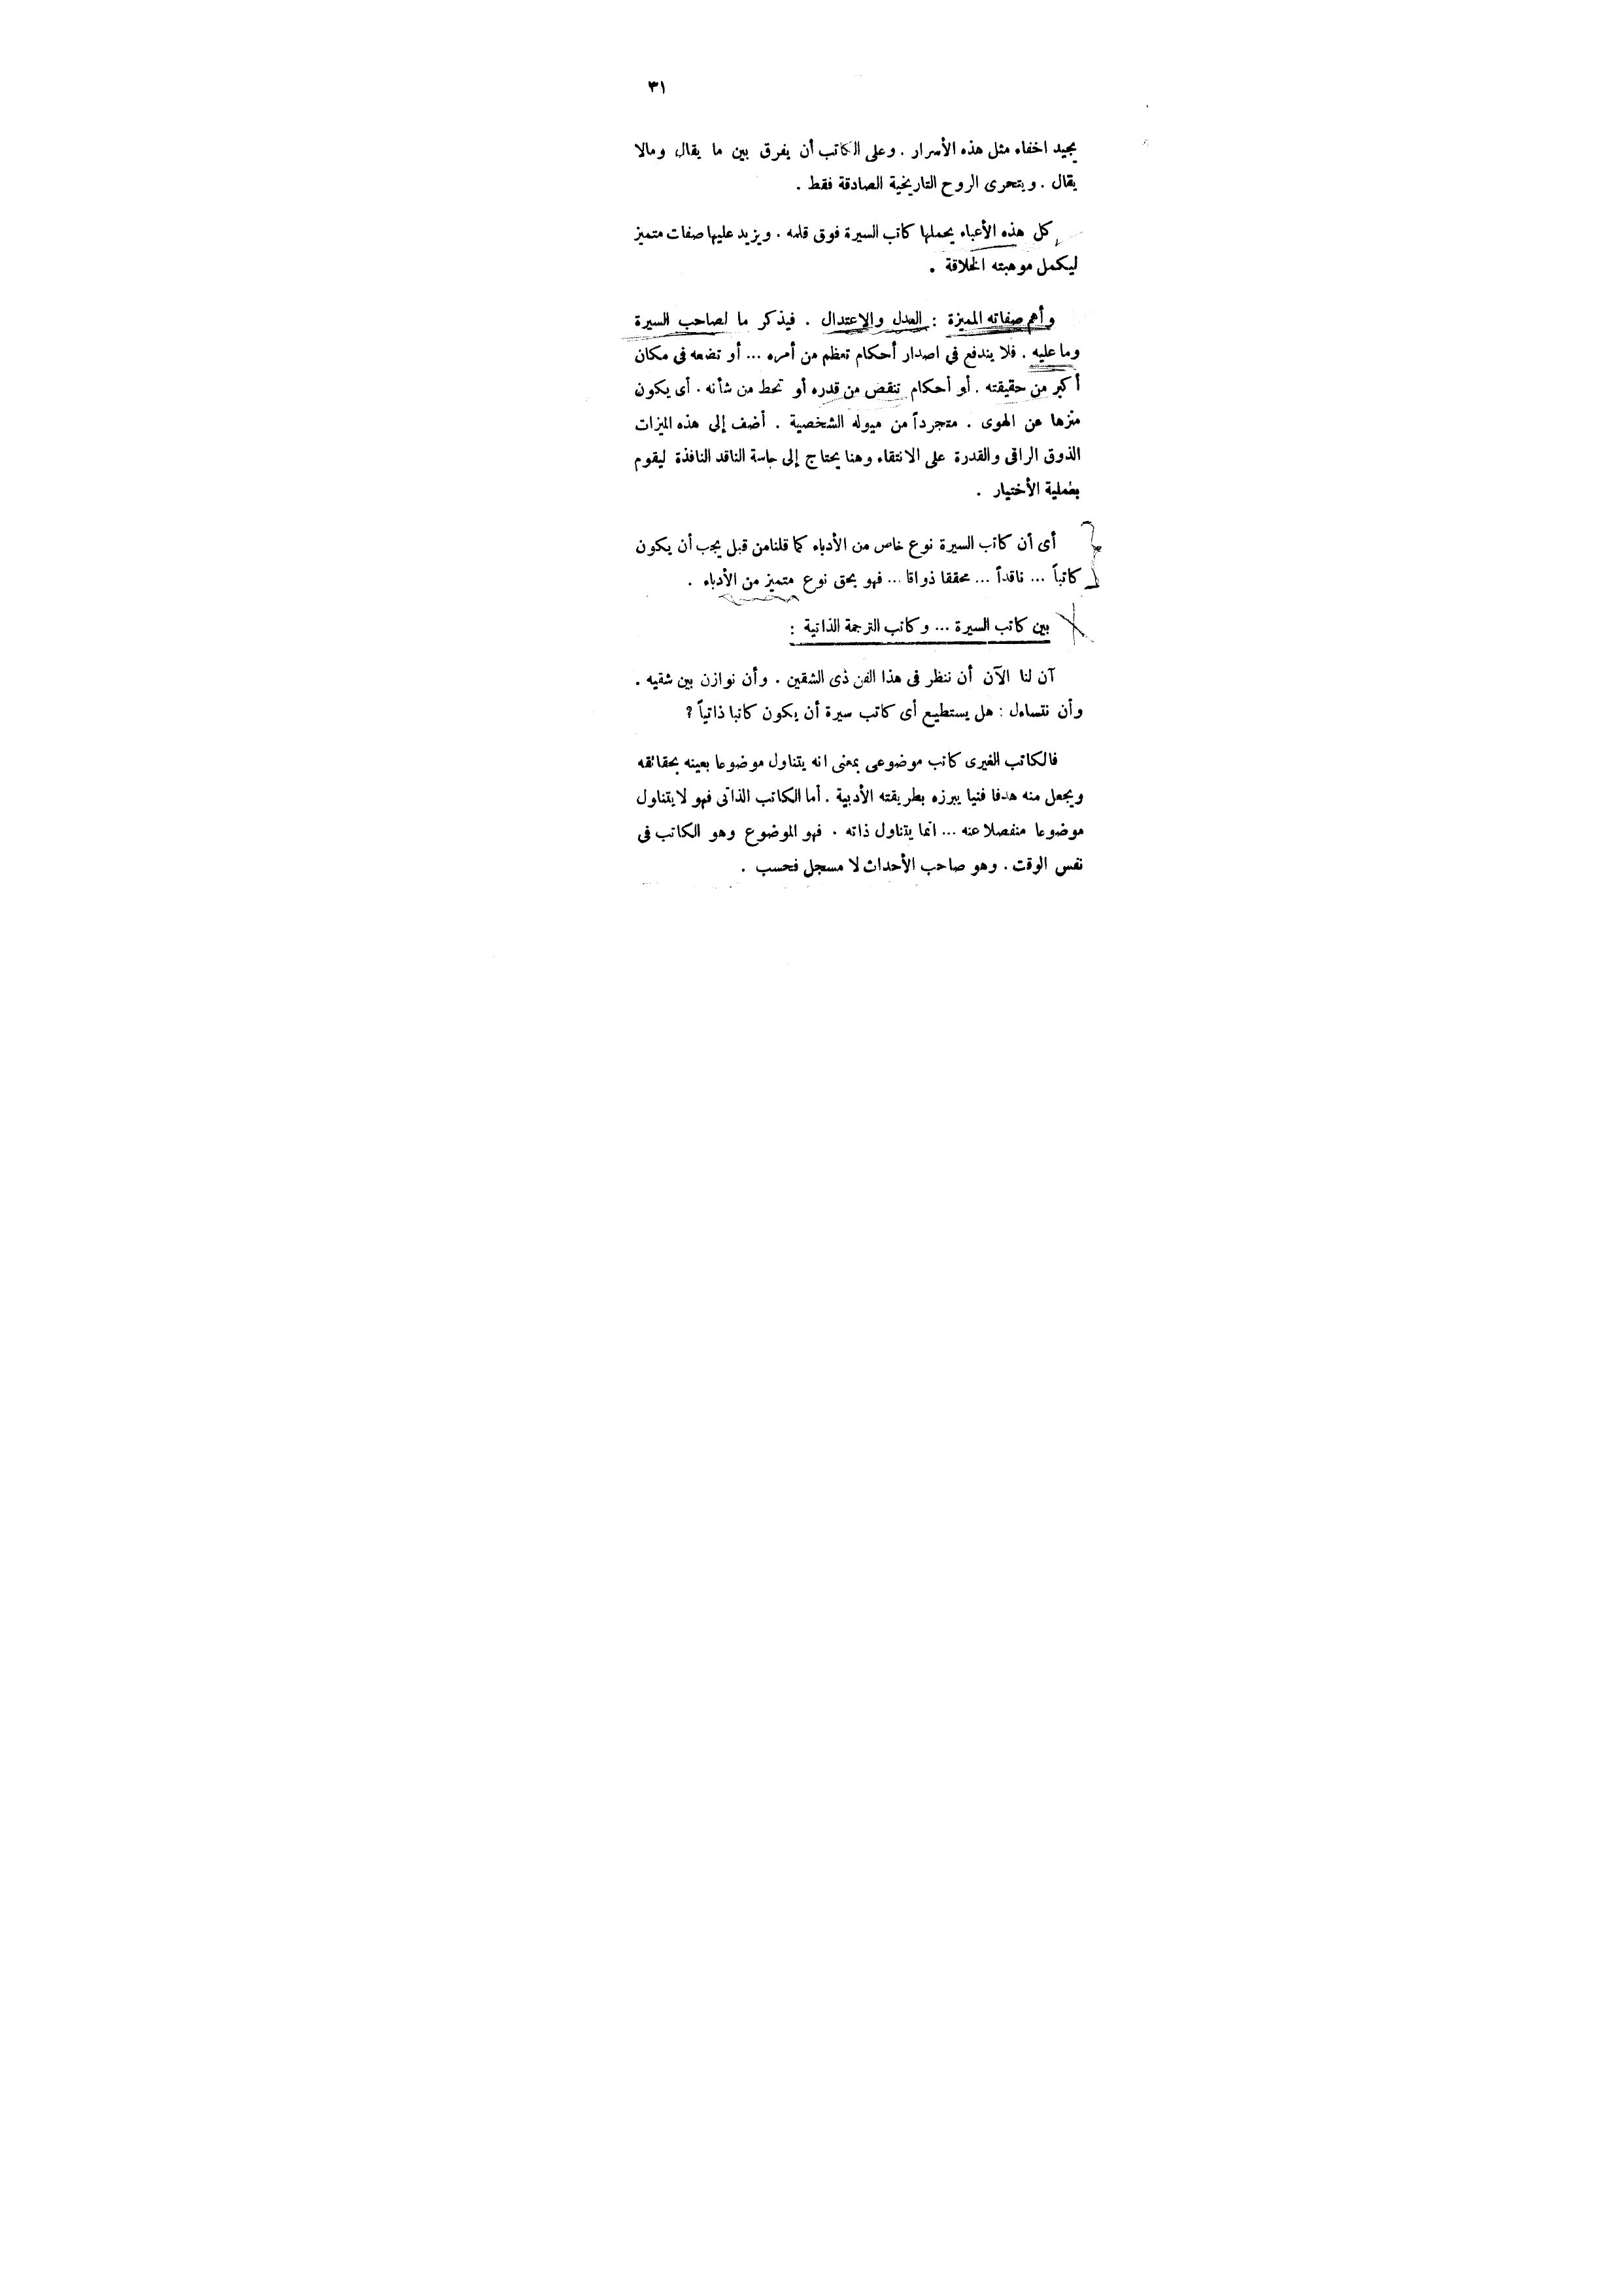 ٣١
يجيد اخفاء مثل هذه الأسرار . وعلى الكاتب أن يفرق بين ما يقال ومالا
يقال . ويتحرى الروح التاريخية الصادقة فقط .
كل هذه الأعباء يحملها كاتب السيرة فوق قلمه . ويزيد عليها صفات متميز
ليكمل موهبته الخلاقة .
وأهم صفاته المميزة : العدل والإعتدال . فيذكر ما لصاحب السيرة
وما عليه . فلا يندفع في اصدار أحكام تعظم من أمره ... أو تضعه فى مكان
أكبر من حقيقته . أو أحكام تنقص من قدره أو تحط من شأنه . أى يكون
منزها عن الهوى . متجرداً من ميوله الشخصية . أضف إلى هذه الميزات
الذوق الراقى والقدرة على الانتقاء وهنا يحتاج إلى حاسة الناقد النافذة ليقوم
بعملية الأختيار .
أى أن كاتب السيرة نوع خاص من الأدباء كما قلنامن قبل يجب أن يكون
كاتباً ... ناقداً ... محققا ذواقا ... فهو بحق نوع متميز من الأدباء .
بين كاتب السيرة ... وكاتب الترجمة الذاتية :
آن لنا الآن أن ننظر فى هذا الفن ذى الشقين . وأن نوازن بين شقيه .
وأن نتساءل : هل يستطيع أى كاتب سيرة أن يكون كاتبا ذاتياً ؟
فالكاتب الغيرى كاتب موضوعى بمعنى انه يتناول موضوعا بعينه بحقائقه
ويجعل منه هدفا فنيا يبرزه بطريقته الأدبية . أما الكاتب الذاتى فهو لايتناول
موضوعا منفصلا عنه ... انما يتناول ذاته . فهو الموضوع وهو الكاتب فى
نفس الوقت . وهو صاحب الأحداث لا مسجل فحسب .